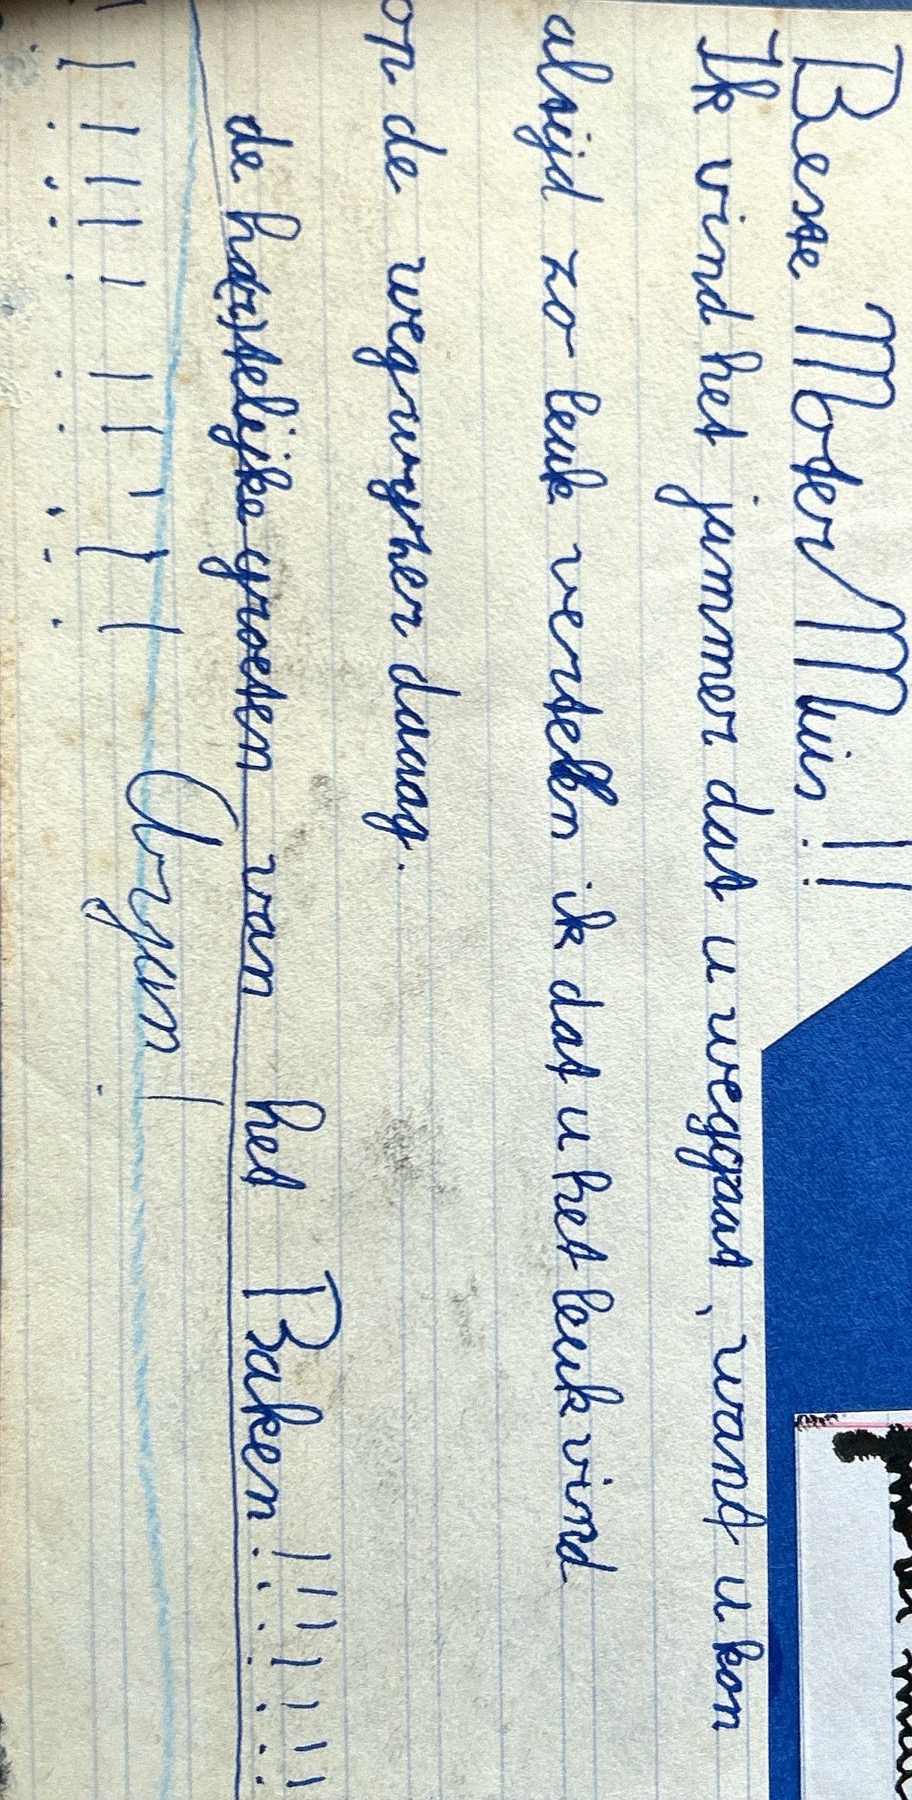 Beste Moter Muis!!
Ik vind het jammer dat u weggaat, want u kon
altijd zo leuk vertellen ik dat u het leuk vind
op de wegwyzer daaag.
de ha(r)telijke groeten van het Baken!!!!!!!!
Aryan!
!!!!!!!!!!!!